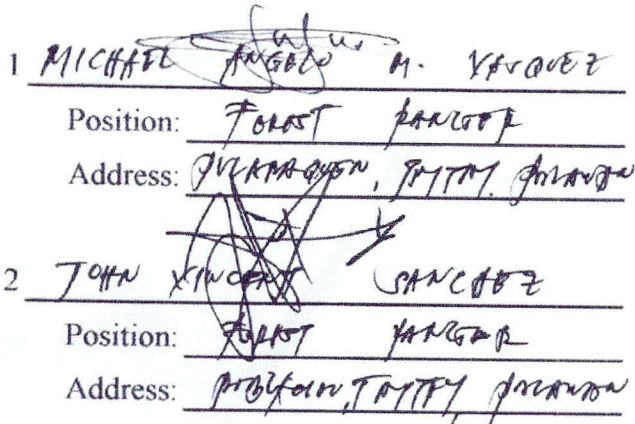 1 MICHAEL ANGELO M. VASQUEZ
Position: FOREST RANGER
Address: TAYTAY, PALAWAN
2 JOHN VINCENT SANCHEZ
Position: FOREST RANGER
Address: TAYTAY, PALAWAN